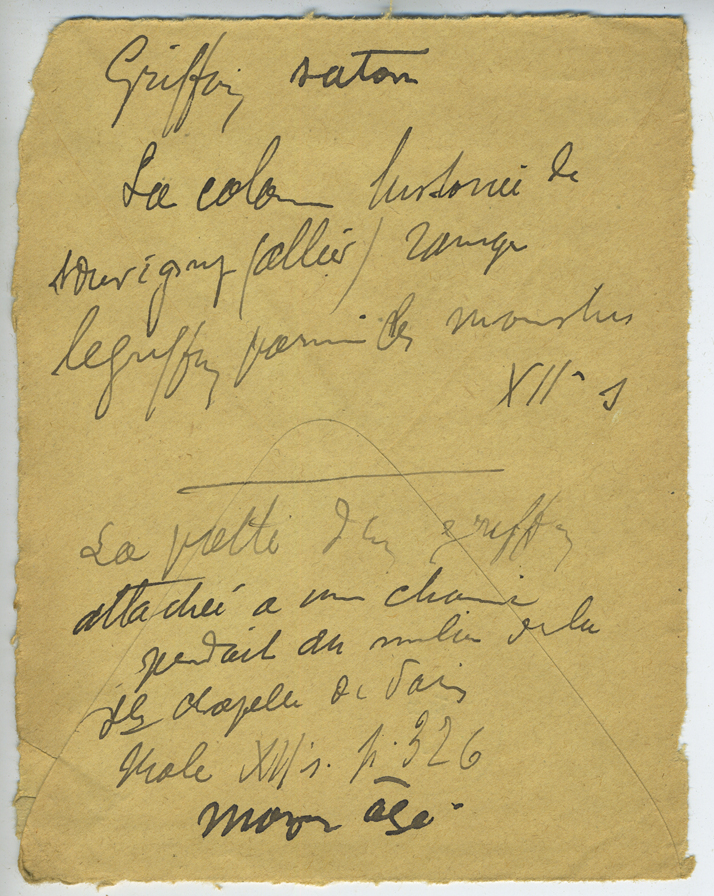 Griffon satan
La colonne historiée de
souvigny (allier) range
le griffon parmi les monstres
XIIe s
La patte d'un griffon
attachée a une chaine
pendait au milieu de la
Ste chapelle de Paris
Male XIIe s. p. 326
moyen âge